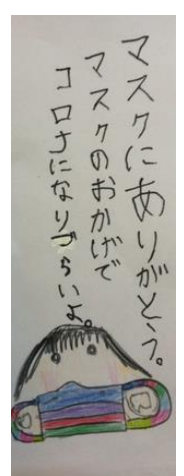 マスクにありがとう。
マスクのおかげで
コロナになりづらいよ。